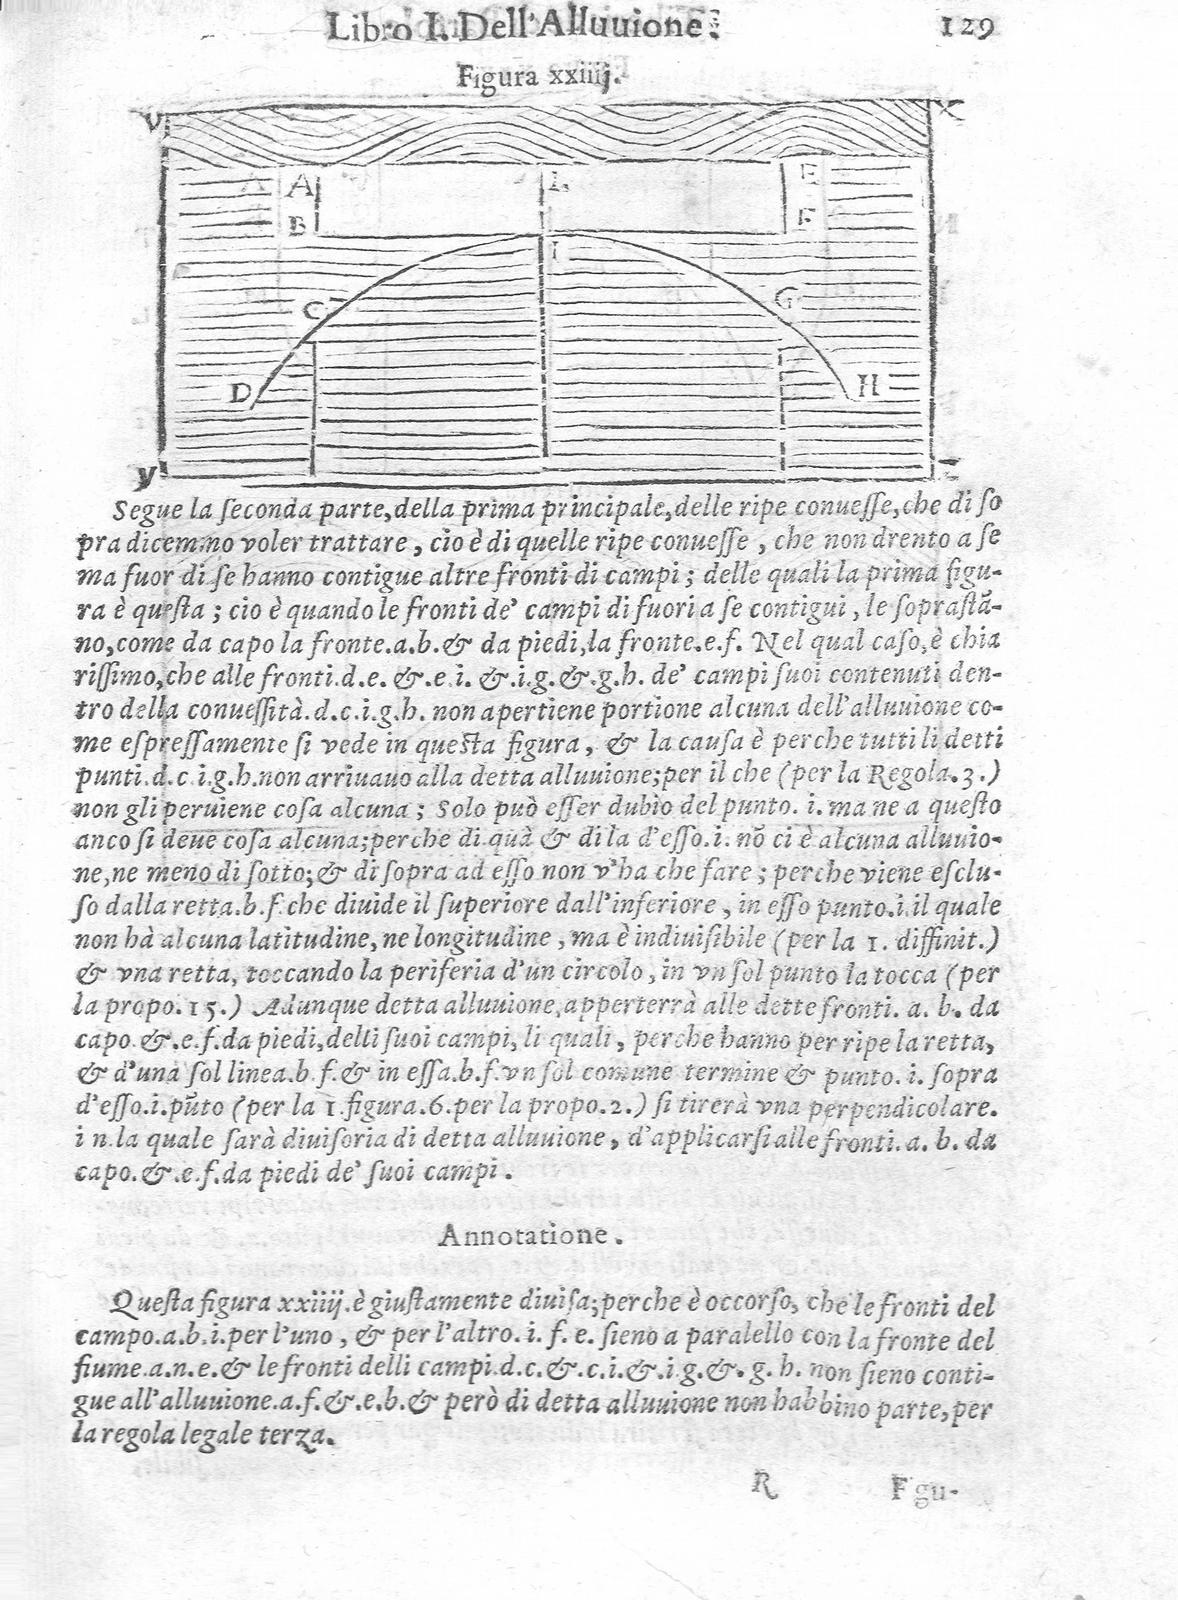 Libro I. Dell'Alluuione.
129
Figura xxiiij.
V
X
A
L
E
B
F
I
C
G
D
H
y
Segue la ſeconda parte, della prima principale, delle ripe conueſſe, che di ſo
pra dicemmo voler trattare, cio è di quelle ripe conueſſe, che non drento a ſe
ma fuor di ſe hanno contigue altre fronti di campi; delle quali la prima figu-
ra è queſta; cio è quando le fronti de' campi di fuori a ſe contigui, le ſopraſtā-
no, come da capo la fronte.a.b.& da piedi, la fronte.e.f. Nel qual caſo, è chia
riſſimo, che alle fronti.d.e. &.e i. &.i.g.&.g.h. de' campi ſuoi contenuti den-
tro della conueſſità.d.c.i.g.h. non apertiene portione alcuna dell'alluuione co-
me eſpreſſamente ſi vede in queſta figura, & la cauſa è perche tutti li detti
punti.d.c.i.g.h.non arriuauo alla detta alluuione; per il che (per la Regola.3.)
non gli peruiene coſa alcuna; Solo può eſſer dubio del punto. i. ma ne a queſto
anco ſi deue coſa alcuna; perche di quà & di la d'eſſo.i. nō ci è alcuna alluuio-
ne, ne meno di ſotto; & di ſopra ad eſſo non v'ha che fare; perche viene eſclu-
ſo dalla retta.b.f. che diuide il ſuperiore dall'inferiore, in eſſo punto.i. il quale
non hà alcuna latitudine, ne longitudine, ma è indiuiſibile (per la 1. diffinit.)
& vna retta, toccando la periferia d'un circolo, in vn ſol punto la tocca (per
la propo.15.) Adunque detta alluuione, apperterrà alle dette fronti. a. b. da
capo.&.e.f.da piedi, delli ſuoi campi, li quali, perche hanno per ripe la retta,
& d'una ſol linea.b.f.& in eſſa.b.f.vn ſol comune termine & punto. i. ſopra
d'eſſo.i.pūto (per la 1.figura.6.per la propo.2.) ſi tirerà vna perpendicolare.
i n.la quale ſarà diuiſoria di detta alluuione, d'applicarſi alle fronti. a. b. da
capo.&.e.f.da piedi de' ſuoi campi.
Annotatione.
Queſta figura xxiiij.è giuſtamente diuiſa; perche è occorſo, che le fronti del
campo.a.b.i.per l'uno, & per l'altro.i. f. e. ſieno a paralello con la fronte del
fiume.a.n.e.& le fronti delli campi.d.c.&.c.i.&.i.g.&. g. h. non ſieno conti-
gue all'alluuione.a.f.&.e.b.& però di detta alluuione non habbino parte, per
la regola legale terza.
R
Fgu-